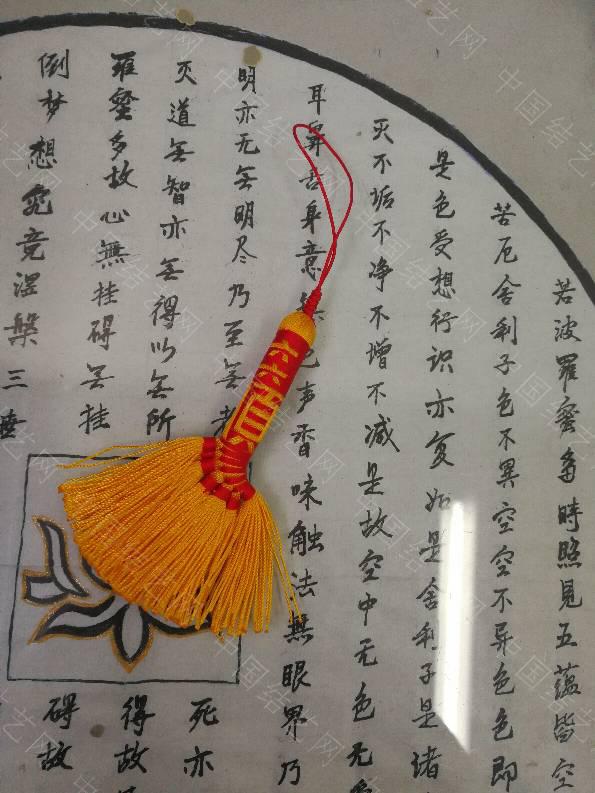 若波羅蜜多時照見五蘊皆空
苦厄舍利子色不異空空不异色色即
是色受想行识亦复如是舍利子是诸
灭不垢不净不增不减是故空中无色无
耳鼻舌身意無色声香味触法無眼界乃
明亦无無明尽乃至無老
死亦
灭道無智亦無得以無所
得故
羅蜜多故心無挂碍無挂
碍故
倒梦想究竟涅槃三
六六
中国结艺网